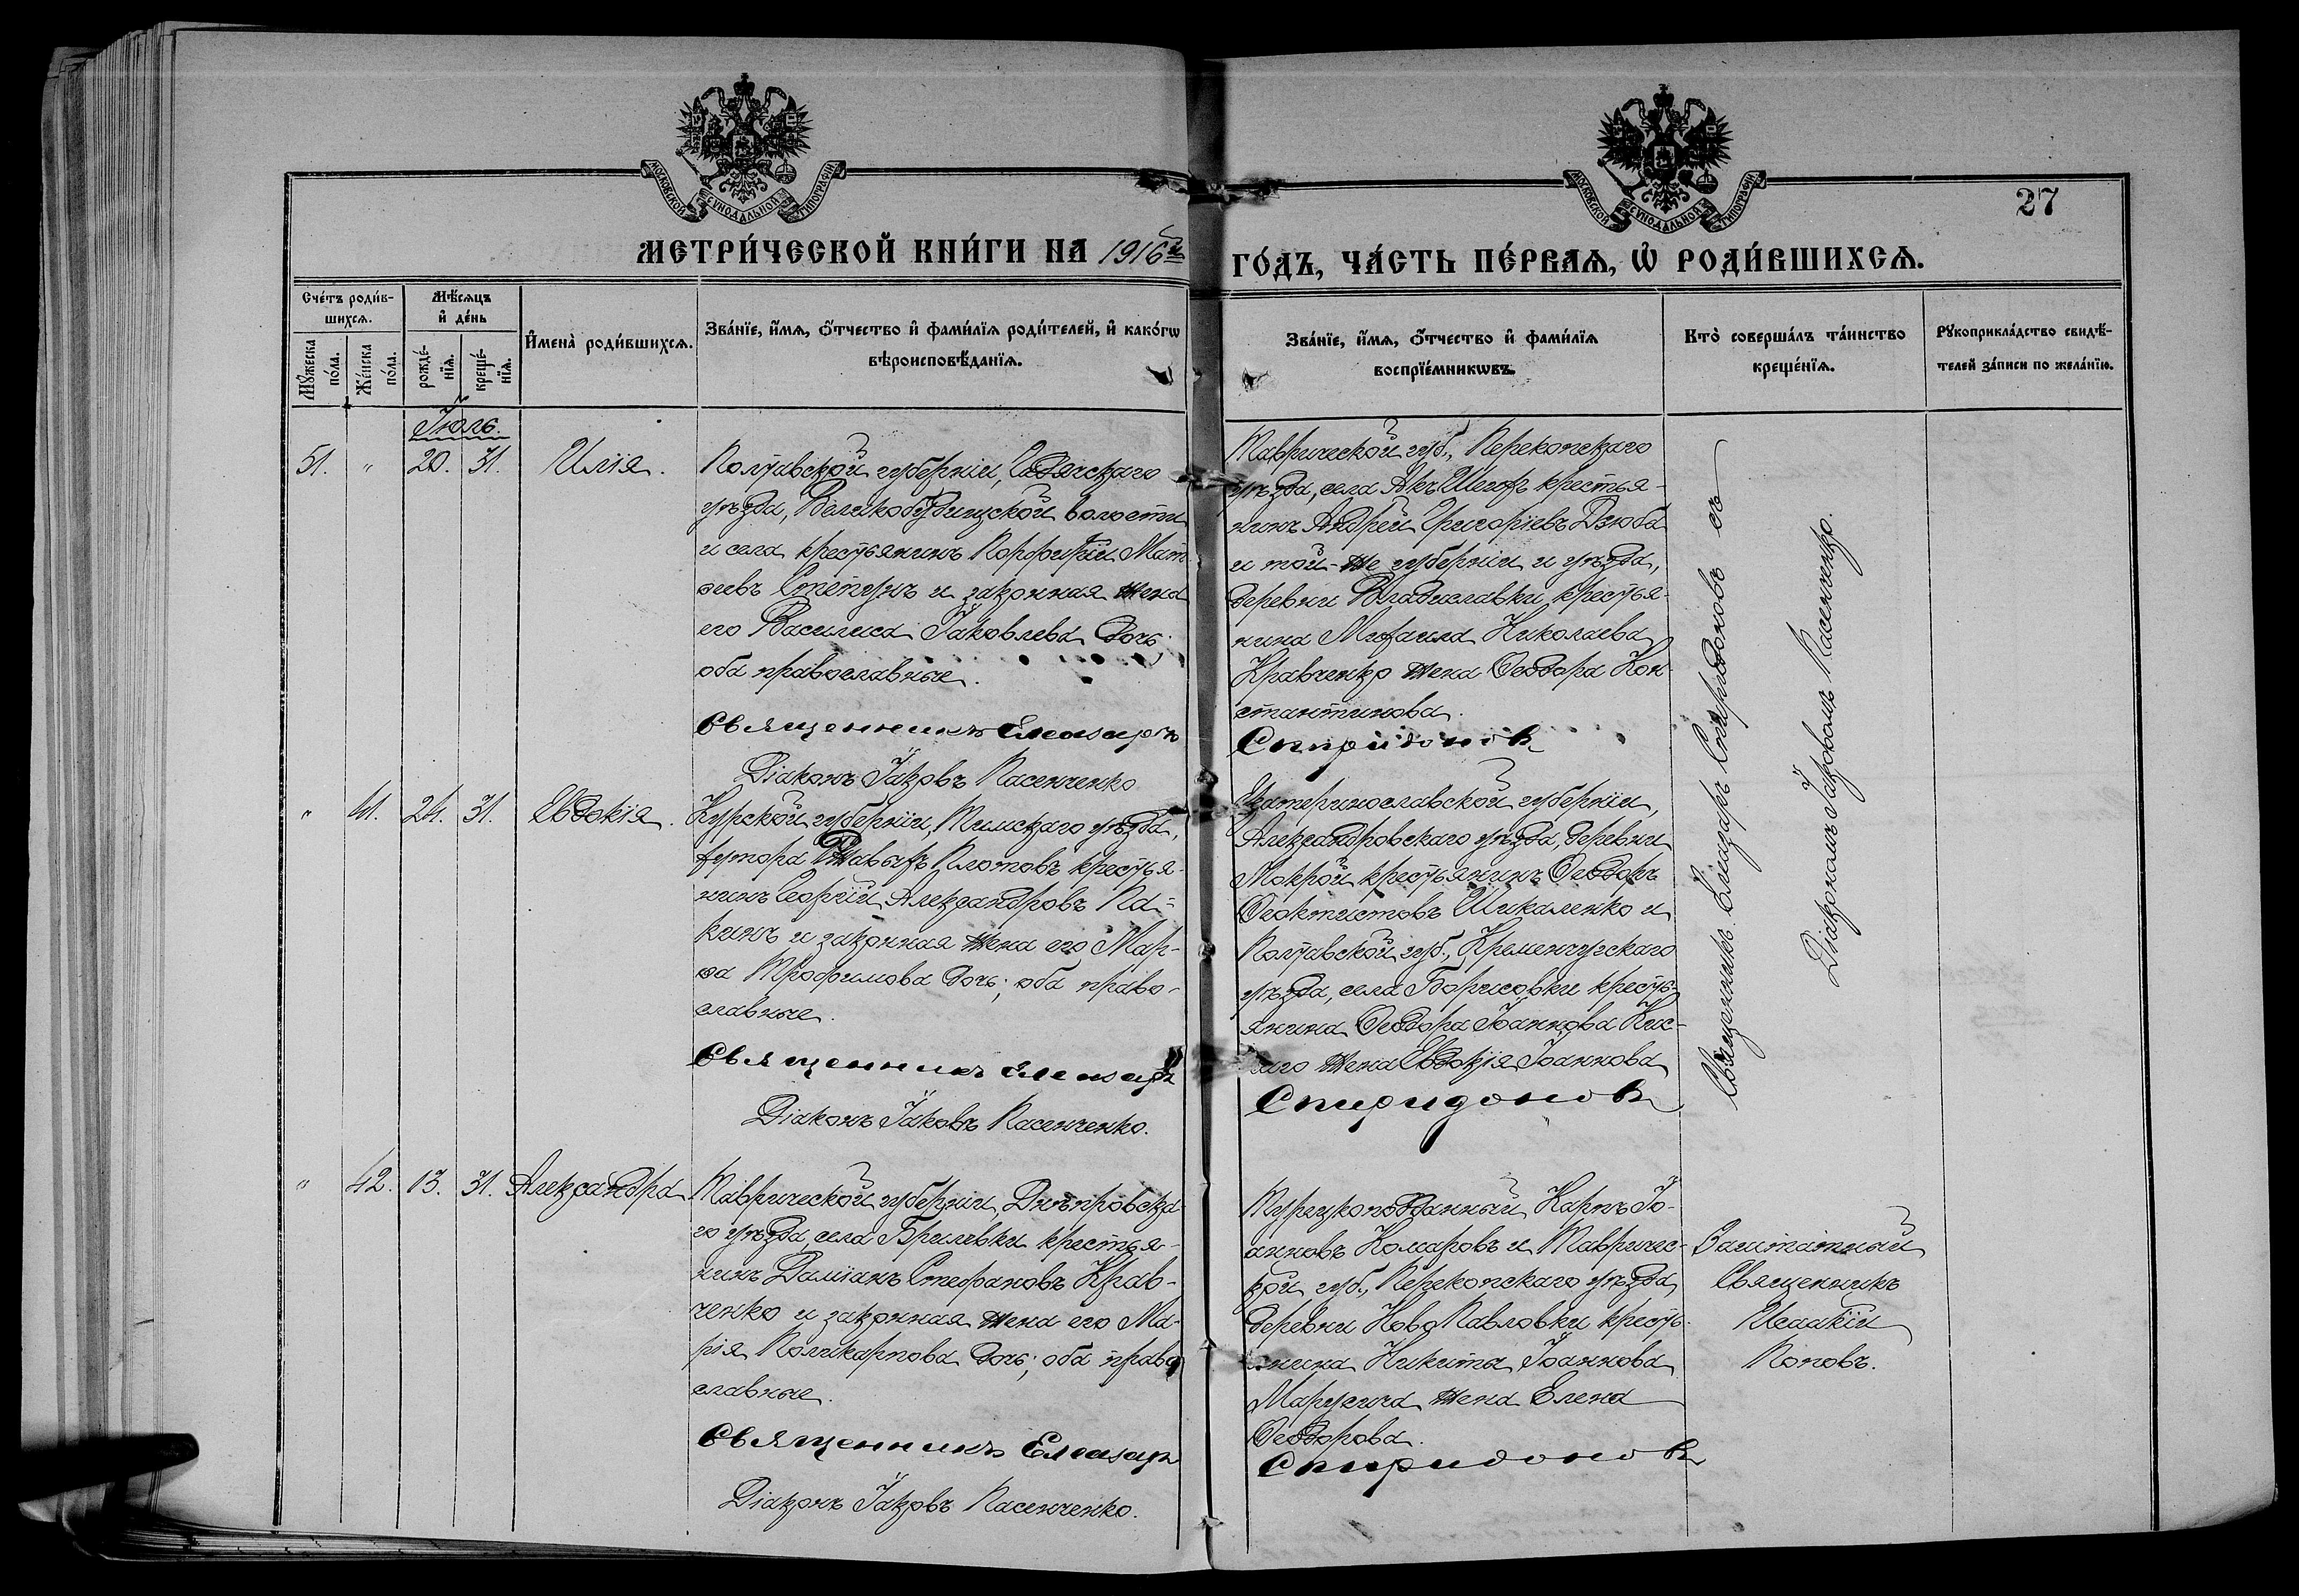 МОСКОВСКОЙ СѴНОДАЛЬНОЙ ТИПОГРАФІИ.
МОСКОВСКОЙ СѴНОДАЛЬНОЙ ТИПОГРАФІИ.
27
МЕТРИ́ЧЕСКОЙ КНИ́ГИ НА 1916й
ГО́ДЪ, ЧА́СТЬ ПЕ́РВАѦ, Ѡ҆ РОДИ́ВШИХСѦ.
Сче́тъ роди́в-
шихсѧ.
Мꙋ́жеска
по́ла.
Же́нска
по́ла.
Мѣ́сѧцъ
и҆ де́нь
рожде́-
нїѧ.
креще́-
нїѧ.
И҆мена̀ роди́вшихсѧ.
Зва́нїе, и҆́мѧ, ѻ҆́тчество и҆ фами́лїѧ роди́телей, и҆ како́гѡ
вѣроисповѣ́данїѧ.
Зва́нїе, и҆́мѧ, ѻ҆́тчество и҆ фами́лїѧ
воспрїе́мникѡвъ.
Кто̀ соверша́лъ та́инство
креще́нїѧ.
Рꙋкоприкла́дство свидѣ́-
телей за́писи по жела́нїю.
Іюль.
51. " 20. 31. Илія.
Полтавской губерніи,
уѣзда, Великобудищской волости
и села крестьянинъ Порфирій Мат-
ѳеевъ Степунъ и законная жена
его Василиса Іаковлева дочь;
оба православные.
Священникъ Елеазаръ
Діаконъ Іаковъ Пасенченко
Таврической губ., Перекопскаго
уѣзда, села Акъ Шехъ крестья-
нинъ Андрей Григоріевъ Дзюба
и той-же губерніи и уѣзда,
деревни Владиславки крестья-
нина Михаила Николаева
Кравченко жена Ѳеодора Кон-
стантинова.
Спиридоновъ
" 41. 24. 31. Евдокія.
Курской губерніи, Тимскаго уѣзда,
хутора Ржавыхъ Плотовъ крестья-
нинъ Георгій Александровъ Па-
кинъ и законная жена его Мар-
ѳа Трофимова дочь; оба право-
славные.
Священникъ Елеазаръ
Діаконъ Іаковъ Пасенченко.
Екатеринославской губерніи,
Александровскаго уѣзда, деревни
Мокрой крестьянинъ Ѳеодоръ
Ѳеоктистовъ Шикаленко и
Полтавской губ., Кременчугскаго
уѣзда, села Борисовки кресть-
янина Ѳеодора Іоаннова Кис-
жена Евдокія Іоаннова
Спиридоновъ
Священникъ Елеазаръ Спиридоновъ съ
Діакономъ Іаковомъ Пасенченко.
" 42. 13. 31. Александра
Таврической губерніи, Днѣпровска-
го уѣзда, села Брилевки крестья-
нинъ Даміанъ Стефановъ Крав-
ченко и законная жена его Ма-
рія Поликарпова дочь; оба право
славные.
Священникъ Елеазаръ
Діаконъ Іаковъ Пасенченко.
Турецкоподданный Карпъ Іо-
анновъ Комаровъ и Тавричес-
кой губ., Перекопскаго уѣзда,
деревни НовоПавловки кресть-
янина Никиты Іоаннова
жена Елена
Ѳеодорова.
Спиридоновъ
Заштатный
Священникъ
Исаакій
Поповъ.